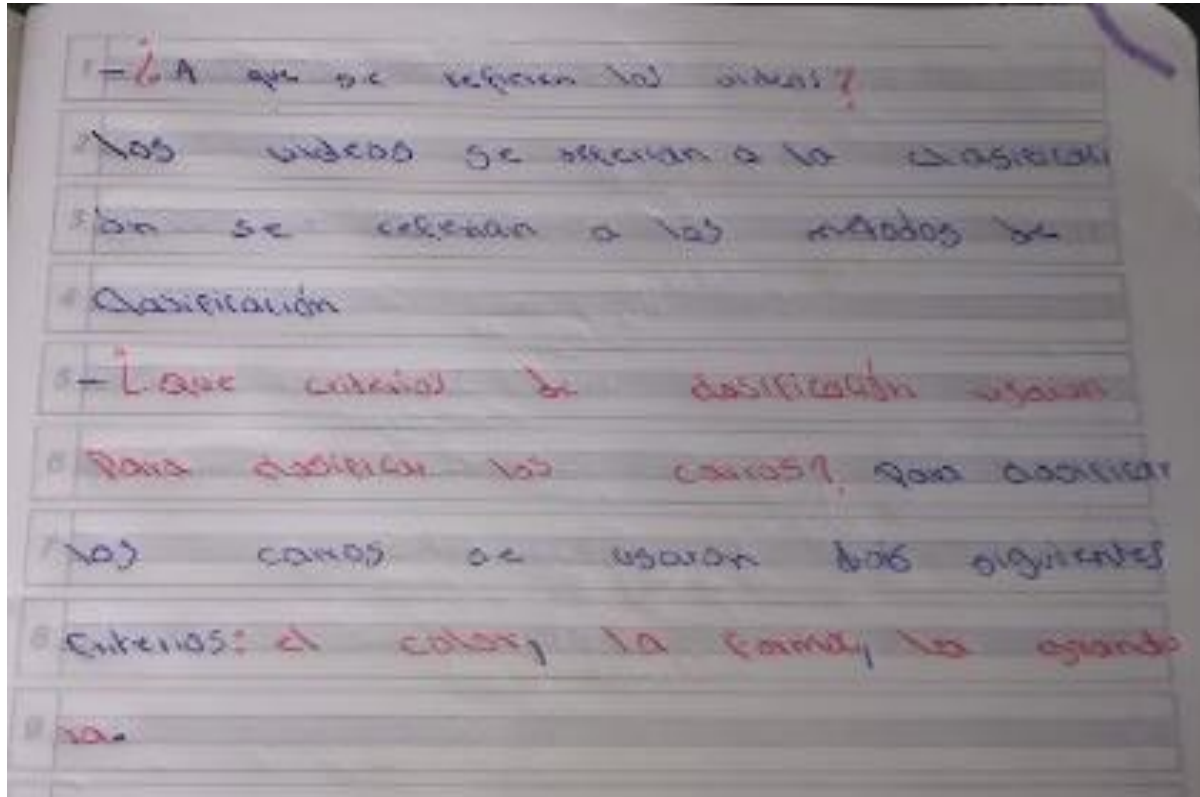 1 - ¿A que se refieren los videos?
2 los videos se referian a la clasificaci
3 ón se referian a los métodos de
4 Clasificación
5 - ¿que criterios de clasificación usaron
6 Para clasificar los carros? Para clasificar
7 los carros se usaron los siguientes
8 Criterios: el color, la forma, la grande
9 za.